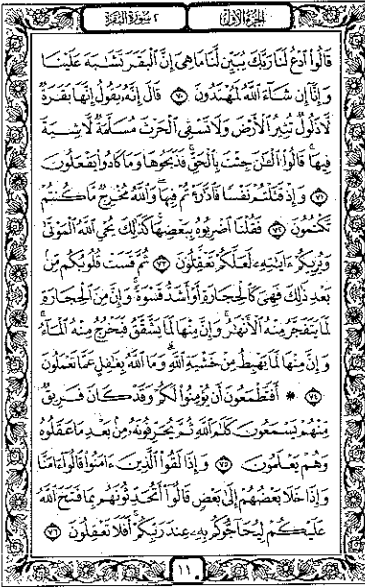 الجزء الأول
٢ سورة البقرة
قَالُوا۟ ٱدْعُ لَنَا رَبَّكَ يُبَيِّن لَّنَا مَا هِىَ إِنَّ ٱلْبَقَرَ تَشَٰبَهَ عَلَيْنَا
وَإِنَّآ إِن شَآءَ ٱللَّهُ لَمُهْتَدُونَ ٧٠ قَالَ إِنَّهُۥ يَقُولُ إِنَّهَا بَقَرَةٌ
لَّا ذَلُولٌ تُثِيرُ ٱلْأَرْضَ وَلَا تَسْقِى ٱلْحَرْثَ مُسَلَّمَةٌ لَّا شِيَةَ
فِيهَا ۚ قَالُوا۟ ٱلْـَٰٔنَ جِئْتَ بِٱلْحَقِّ ۚ فَذَبَحُوهَا وَمَا كَادُوا۟ يَفْعَلُونَ
٧١ وَإِذْ قَتَلْتُمْ نَفْسًا فَٱدَّٰرَْٰٔتُمْ فِيهَا ۖ وَٱللَّهُ مُخْرِجٌ مَّا كُنتُمْ
تَكْتُمُونَ ٧٢ فَقُلْنَا ٱضْرِبُوهُ بِبَعْضِهَا ۚ كَذَٰلِكَ يُحْىِ ٱللَّهُ ٱلْمَوْتَىٰ
وَيُرِيكُمْ ءَايَٰتِهِۦ لَعَلَّكُمْ تَعْقِلُونَ ٧٣ ثُمَّ قَسَتْ قُلُوبُكُم مِّنۢ
بَعْدِ ذَٰلِكَ فَهِىَ كَٱلْحِجَارَةِ أَوْ أَشَدُّ قَسْوَةً ۚ وَإِنَّ مِنَ ٱلْحِجَارَةِ
لَمَا يَتَفَجَّرُ مِنْهُ ٱلْأَنْهَٰرُ ۚ وَإِنَّ مِنْهَا لَمَا يَشَّقَّقُ فَيَخْرُجُ مِنْهُ ٱلْمَآءُ ۚ
وَإِنَّ مِنْهَا لَمَا يَهْبِطُ مِنْ خَشْيَةِ ٱللَّهِ ۗ وَمَا ٱللَّهُ بِغَٰفِلٍ عَمَّا تَعْمَلُونَ
٧٤ ۞ أَفَتَطْمَعُونَ أَن يُؤْمِنُوا۟ لَكُمْ وَقَدْ كَانَ فَرِيقٌ
مِّنْهُمْ يَسْمَعُونَ كَلَٰمَ ٱللَّهِ ثُمَّ يُحَرِّفُونَهُۥ مِنۢ بَعْدِ مَا عَقَلُوهُ
وَهُمْ يَعْلَمُونَ ٧٥ وَإِذَا لَقُوا۟ ٱلَّذِينَ ءَامَنُوا۟ قَالُوٓا۟ ءَامَنَّا
وَإِذَا خَلَا بَعْضُهُمْ إِلَىٰ بَعْضٍ قَالُوٓا۟ أَتُحَدِّثُونَهُم بِمَا فَتَحَ ٱللَّهُ
عَلَيْكُمْ لِيُحَآجُّوكُم بِهِۦ عِندَ رَبِّكُمْ ۚ أَفَلَا تَعْقِلُونَ ٧٦
١١